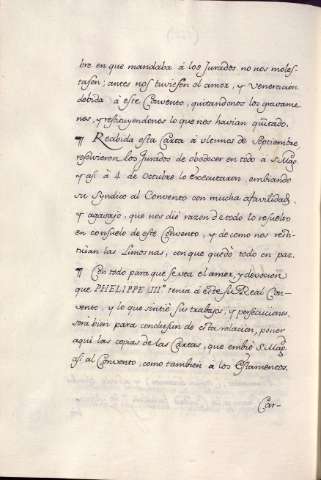 bre en que mandaba á los Jurados no nos moles-
tasen; antes nos tuviesen el amor, y veneracion
debida á este Convento, quitandonos los gravame
nes, y restituyendonos lo que nos havian quitado.
¶ Recibida esta Carta á ultimos de Septiembre
resolvieron los Jurados de obedecer en todo á S. Mag.
y asi á 4 de Octubre lo executaron, embiando
su Syndico al Convento con mucha afavilidad,
y agasajo, que nos dió razon de todo lo resuelto
en consuelo de este Convento, y de como nos resti-
tuian las Limosnas, con que quedó todo en paz.
¶ Con todo para que se vea el amor, y devocion
que PHELIPPE III.º tenia á este su Real Con-
vento, y lo que sintió sus trabajos, y persecuciones,
será bien para conclusion de esta relacion, poner
aqui las copias de las Cartas, que embió S. Mag.
asi al Convento, como tambien á los Estamentos.
Car-